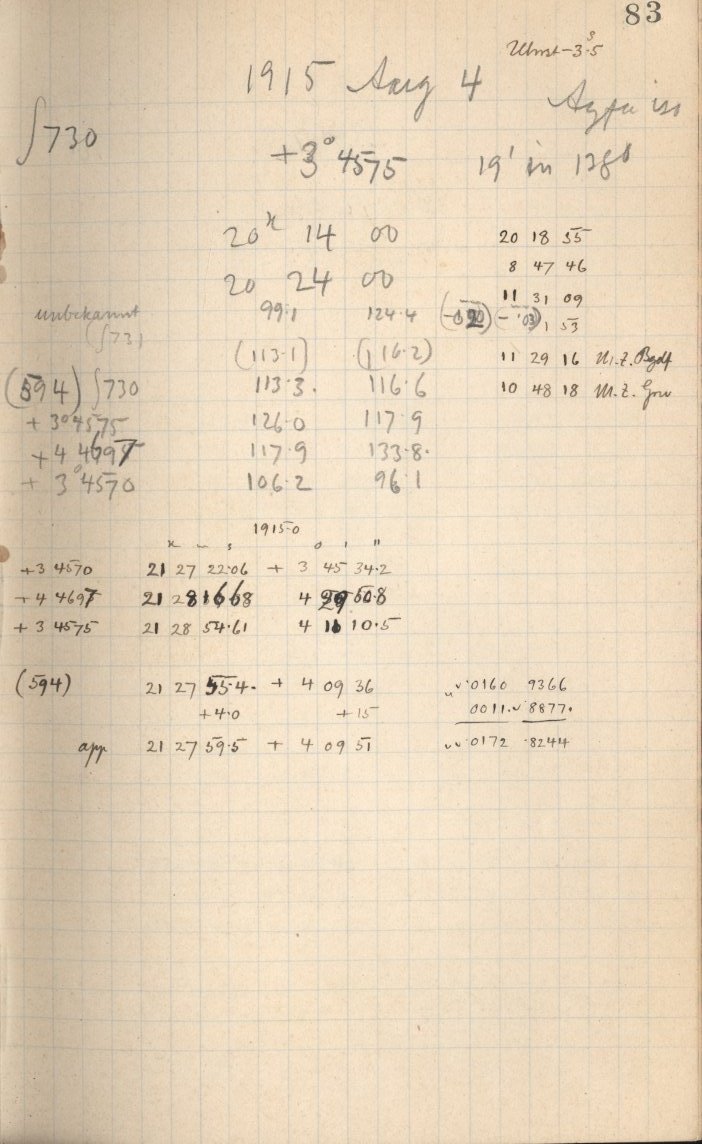 83
1915 Aug 4
∫730
+3° 4575 19' in 138s
20h 14 00
20 24 00
20 18 55
8 47 46
11 31 09
1 53
11 29 16 M.Z. Bgdf
10 48 18 M.Z. Grw
unbekannt 99.1 124.4
(∫73)
(113.1) (116.2)
(594) ∫730 113.3. 116.6
+ 3° 4575 126.0 117.9
+ 4 4697 117.9 133.8.
+ 3° 4570 106.2 96.1
1915.0
h m s o ' "
+3 4570 21 27 22.06 + 3 45 34.2
+4 4697 21 28 16.68 4 29 50.8
+3 4575 21 28 54.61 4 11 10.5
(594) 21 27 55.4. + 4 09 36
+4.0 +15
app 21 27 59.5 + 4 09 51
0160 9366
0011. 8877.
0172 .8244